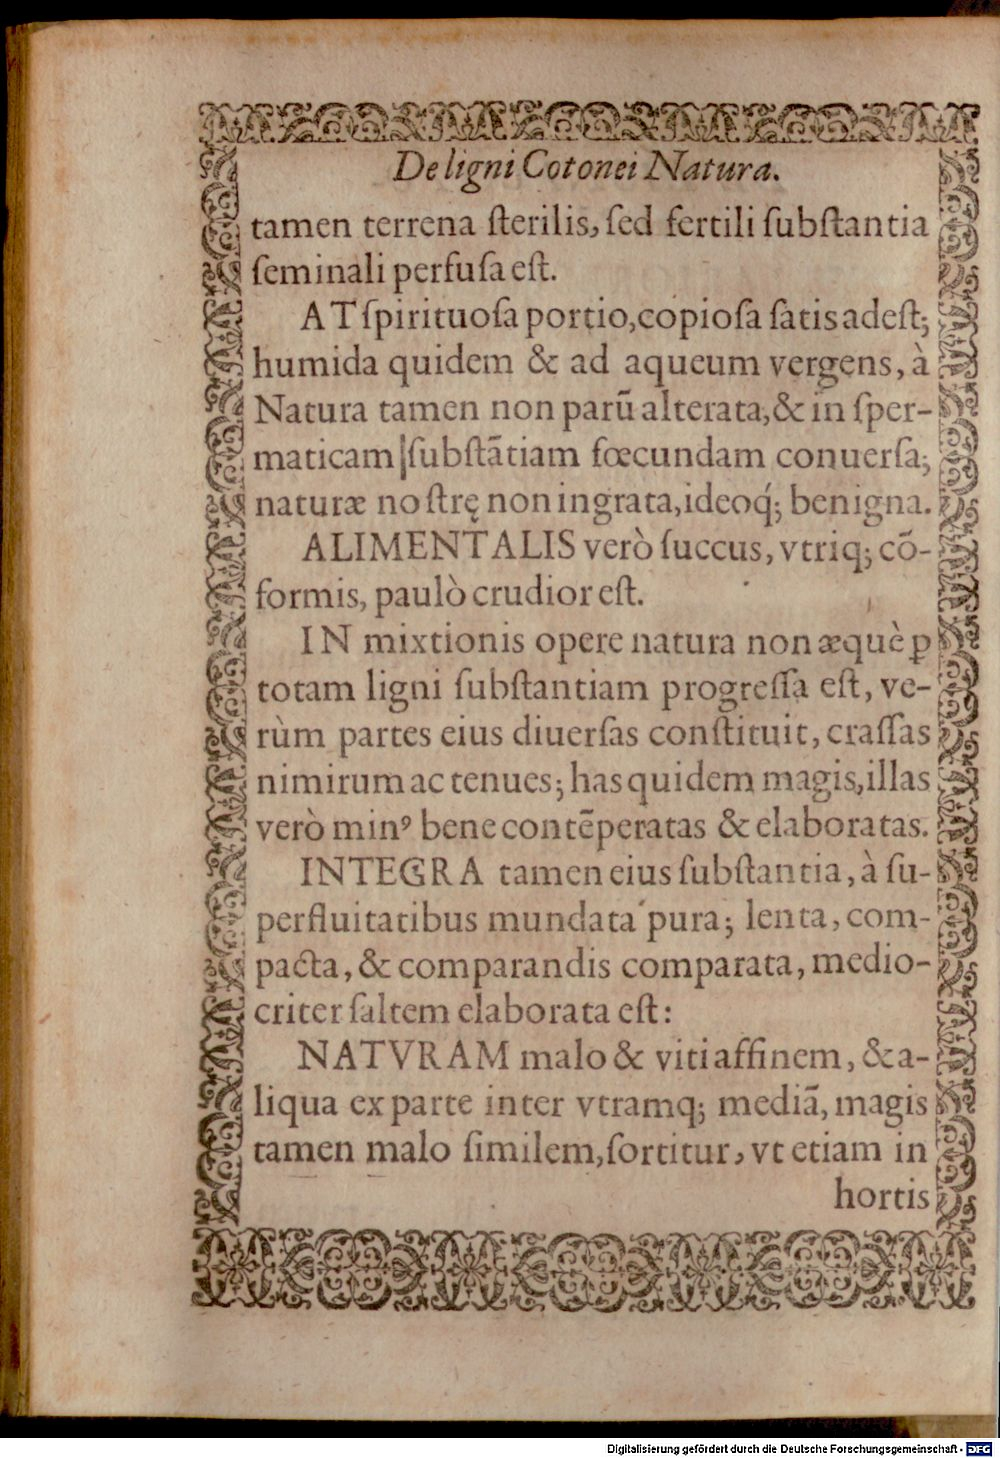 De ligni Cotonei Natura.
tamen terrena ſterilis, ſed fertili ſubſtantia
ſeminali perfuſa eſt.
AT ſpirituoſa portio, copioſa ſatis adeſt;
humida quidem & ad aqueum vergens, à
Natura tamen non parū alterata, & in ſper-
maticam ſubſtātiam fœcundam conuerſa;
naturæ noſtrę non ingrata, ideoq́; benigna.
ALIMENTALIS verò ſuccus, vtriq; cō-
formis, paulò crudior eſt.
IN mixtionis opere natura non æquè ꝑ
totam ligni ſubſtantiam progreſſa eſt, ve-
rùm partes eius diuerſas conſtituit, craſſas
nimirum ac tenues; has quidem magis, illas
verò minꝰ bene contēperatas & elaboratas.
INTEGRA tamen eius ſubſtantia, à ſu-
perfluitatibus mundata pura; lenta, com-
pacta, & comparandis comparata, medio-
criter ſaltem elaborata eſt:
NATVRAM malo & viti affinem, & a-
liqua ex parte inter vtramq; mediā, magis
tamen malo ſimilem, ſortitur, vt etiam in
hortis
Digitalisierung gefördert durch die Deutsche Forschungsgemeinschaft - DFG